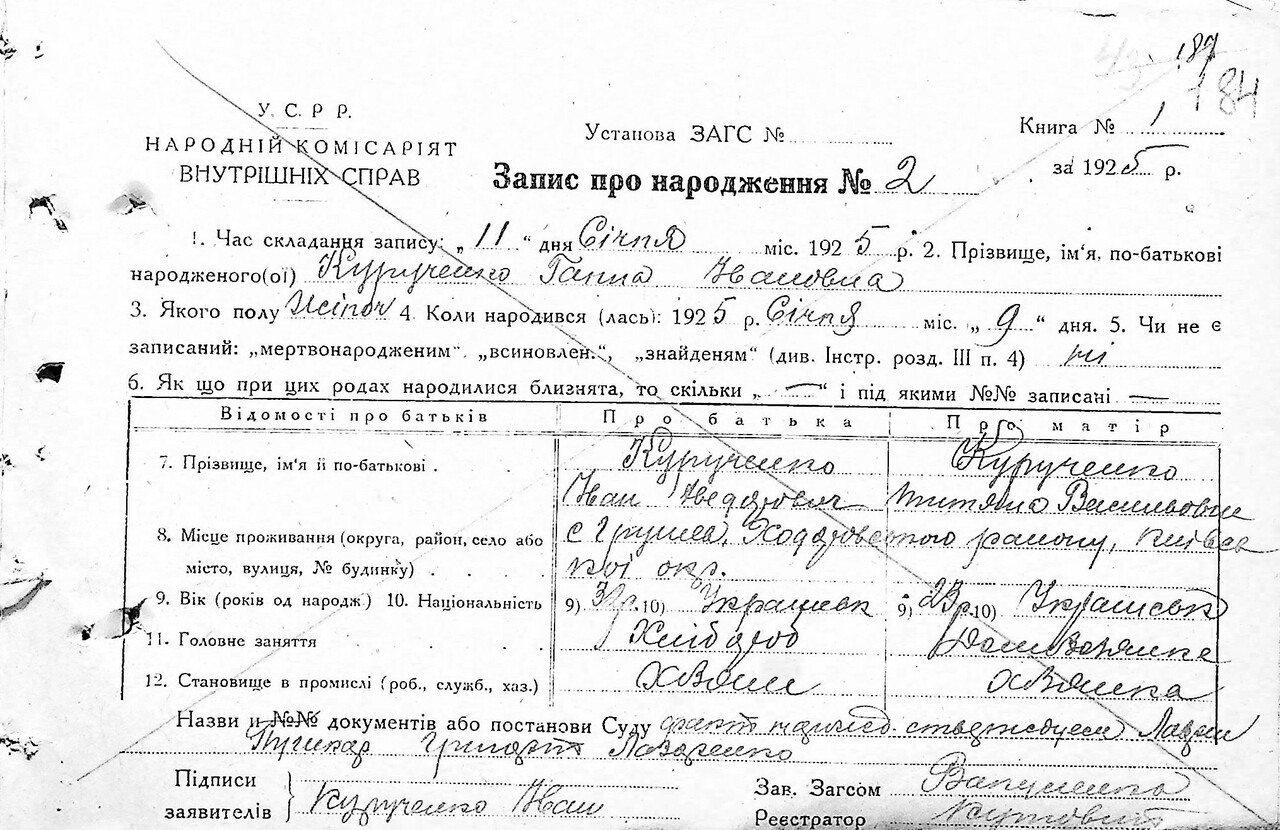 189
184
У. С. Р Р.
НАРОДНІЙ КОМІСАРІЯТ
ВНУТРІШНІХ СПРАВ
Установа ЗАГС №
Книга № 1
за 1925 р.
Запис про народження № 2
1. Час складання запису: „ 11 “ дня Січня міс. 1925 р. 2. Прізвище, ім'я, по-батькові
народженого(ої) Курученко Ганна Ивановна
3. Якого полу жіноч 4. Коли народився (лась): 1925 р. Січня міс. „ 9 “ дня. 5. Чи не є
записаний: „мертвонародженим“, „всиновлен.“, „знайденям“ (див. Інстр. розд. III п. 4) ні
6. Як що при цих родах народилися близнята, то скільки „ — “ і під якими №№ записані —
Відомості про батьків Про батька Про матір
7. Прізвище, ім'я й по-батькові . Курученко Курученко
Иван Васильовни
8. Місце проживання (округа, район, село або с Грушев, Ходоровского району, Київсь
місто, вулиця, № будинку) . . кої окр.
9. Вік (років од народж) 10. Національність 9) 10) Українськ 9) 23 р. 10) Українськ
11. Головне заняття Хлібороб Домовоз
12. Становище в промислі (роб., служб., хаз.) хазяин хазяйка
Назви и №№ документів або постанови Суду факт народ.
Лазаренко
Підписи
заявителів Курученко Иван
Зав. Загсом
Реєстратор